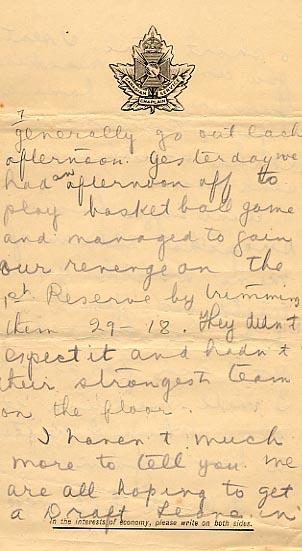 CANADIAN CHAPLAIN SERVICE
I
generally go out each
afternoon. Yesterday we
had an afternoon off to
play basket ball game
and managed to gain
our revenge on the
1st Reserve by trimming
them 29-18. They didn't
expect it and hadn't
their strongest team
on the floor.
I haven't much
more to tell you. We
are all hoping to get
a Draft Leave in
In the interests of economy, please write on both sides.